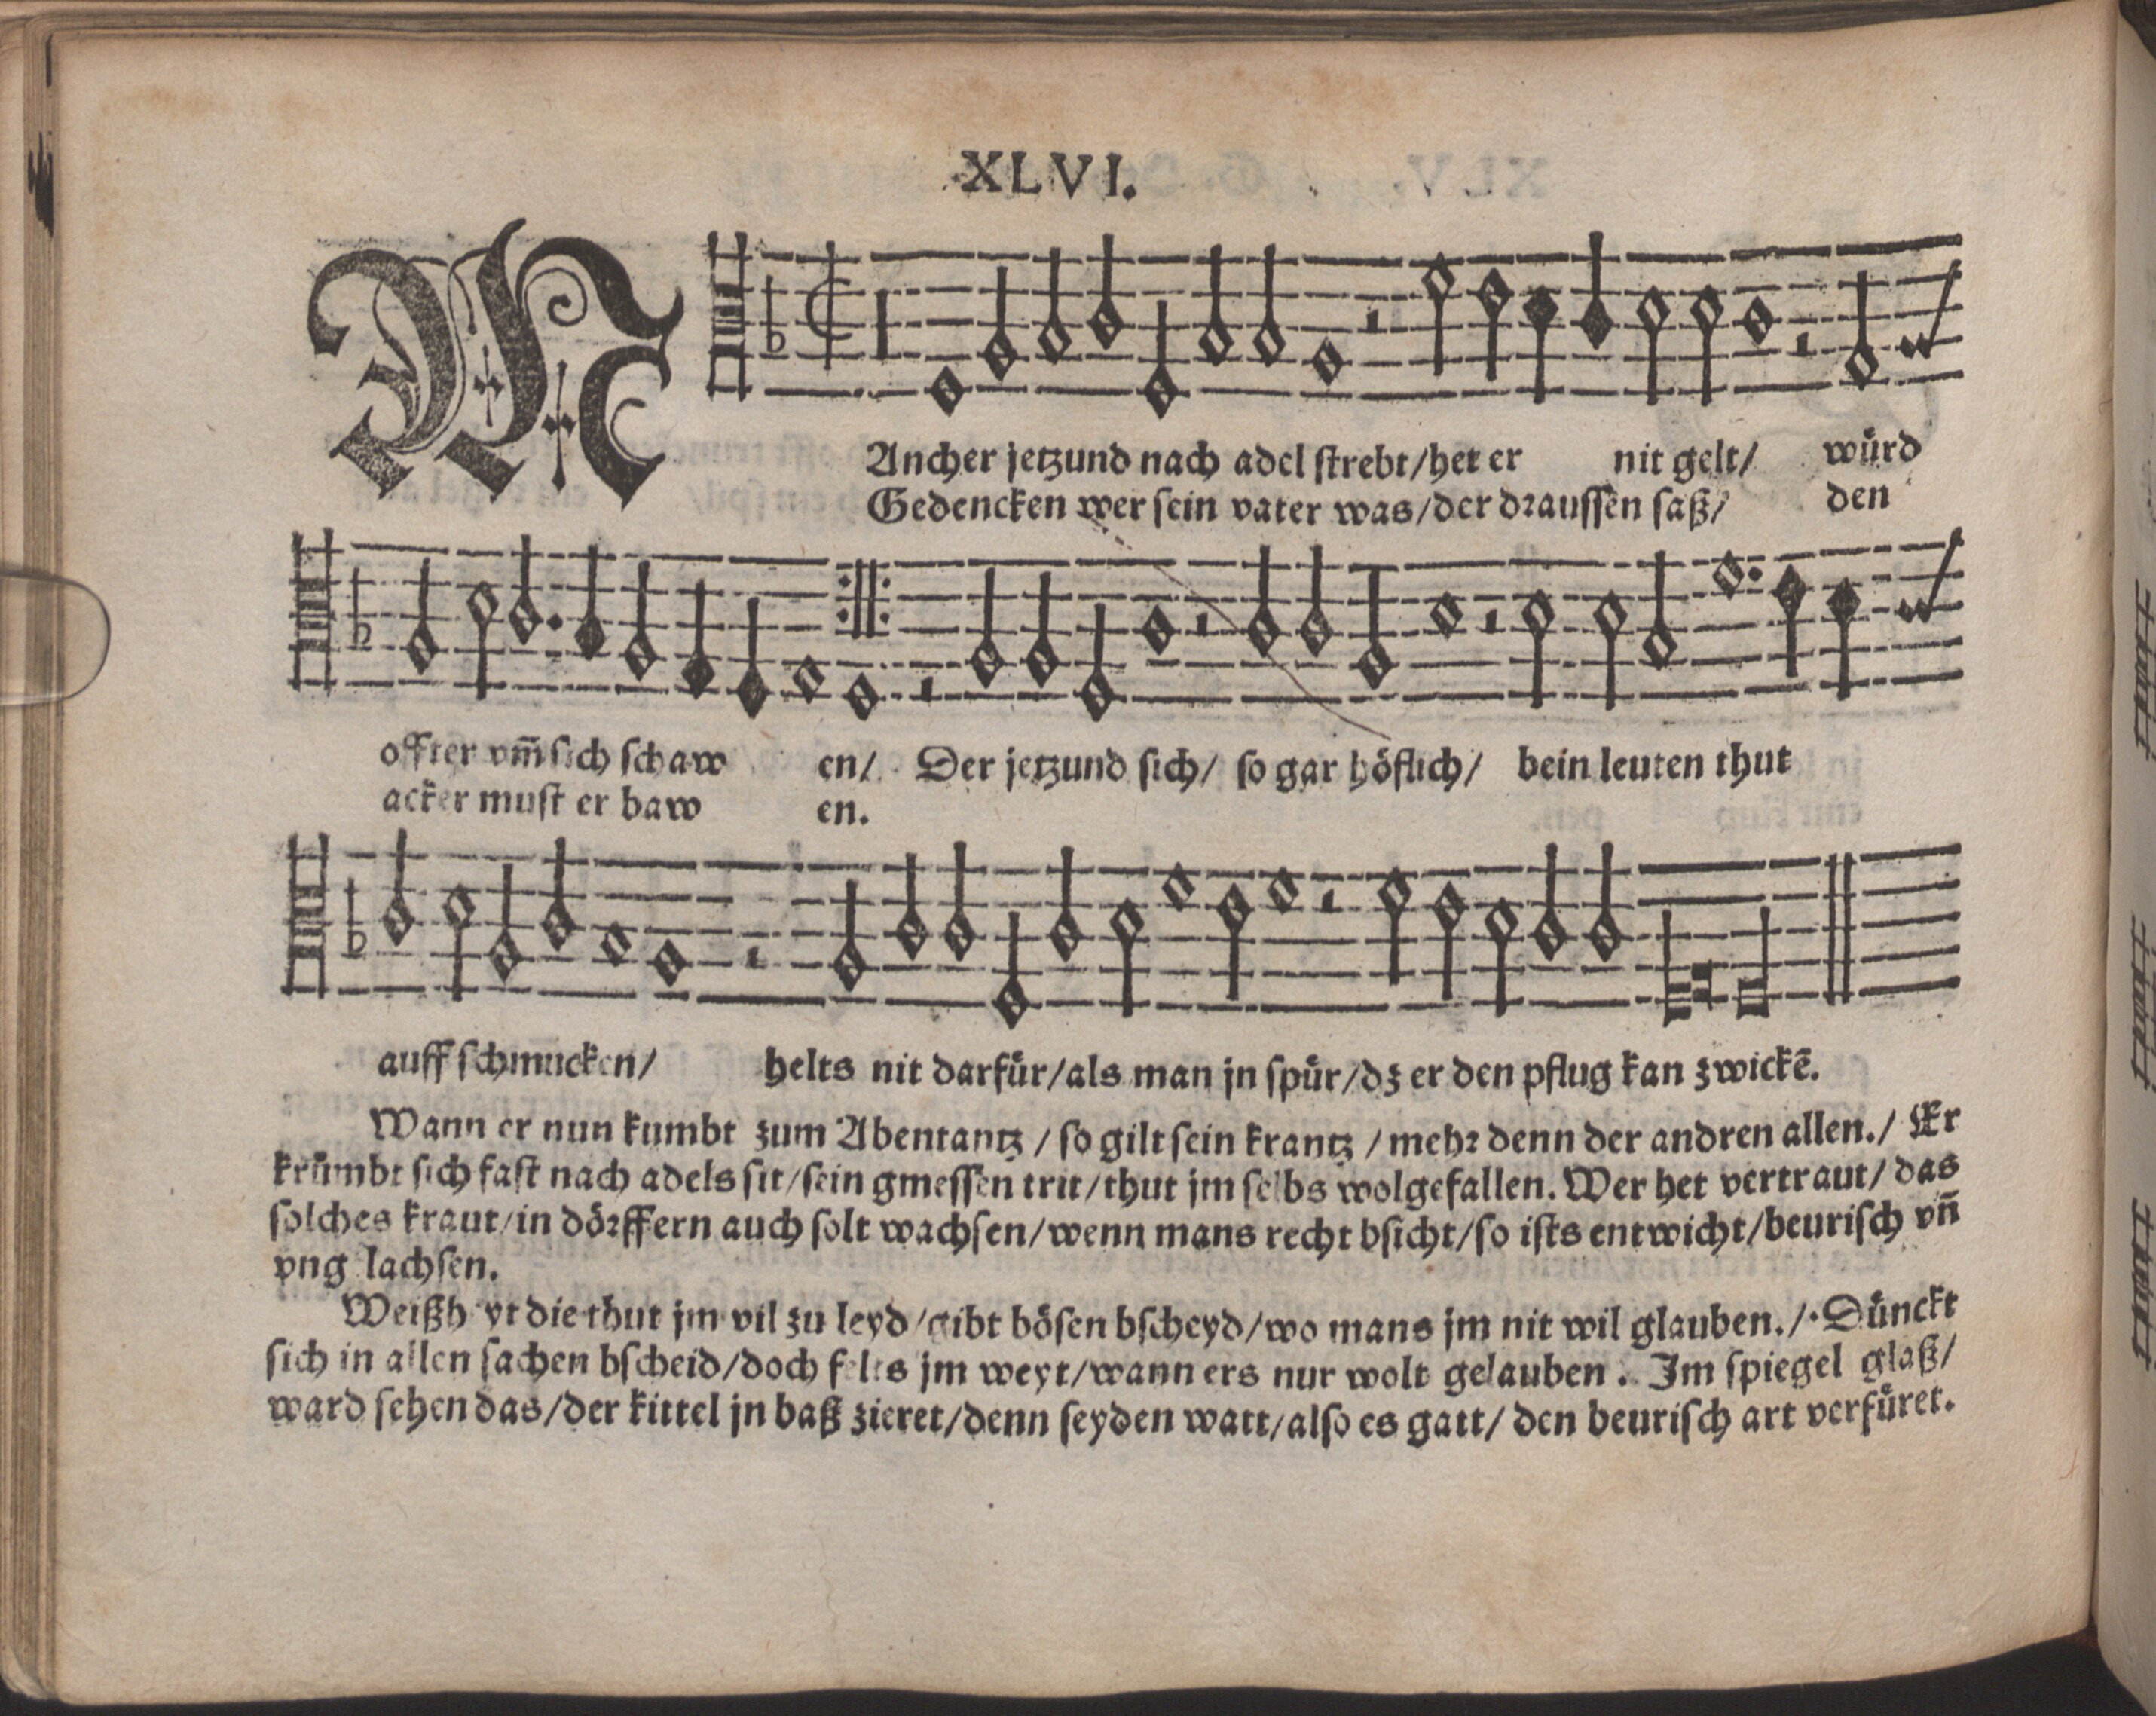 XLVI.
M
Ancher jetzund nach adel ſtrebt/het er nit gelt/ würd
Gedencken wer ſein vater was/der drauſſen ſaß/ den
offter vm̃ ſich ſchaw en/ Der jetzund ſich/ ſo gar höflich/ bein leuten thut
acker muſt er baw en.
auff ſchmucken/ helts nit darfür/als man jn ſpür/dz er den pflug kan zwickē.
Wann er nun kumbt zum Abentantz / ſo gilt ſein krantz / mehr denn der andren allen./ Er
krümbt ſich faſt nach adels ſit/ſein gmeſſen trit/thut jm ſelbs wolgefallen. Wer het vertraut/ das
ſolches kraut/in dörffern auch ſolt wachſen/wenn mans recht bſicht/ſo iſts entwicht/beuriſch vn̄
vng lachſen.
die thut jm vil zu leyd/gibt böſen bſcheyd/wo mans jm nit wil glauben./ Dünckt
ſich in allen ſachen bſcheid/doch felts jm weyt/wann ers nur wolt gelauben. Im ſpiegel glaß/
ward ſehen das/der kittel jn baß zieret/denn ſeyden watt/alſo es gatt/ den beuriſch art verfüret.